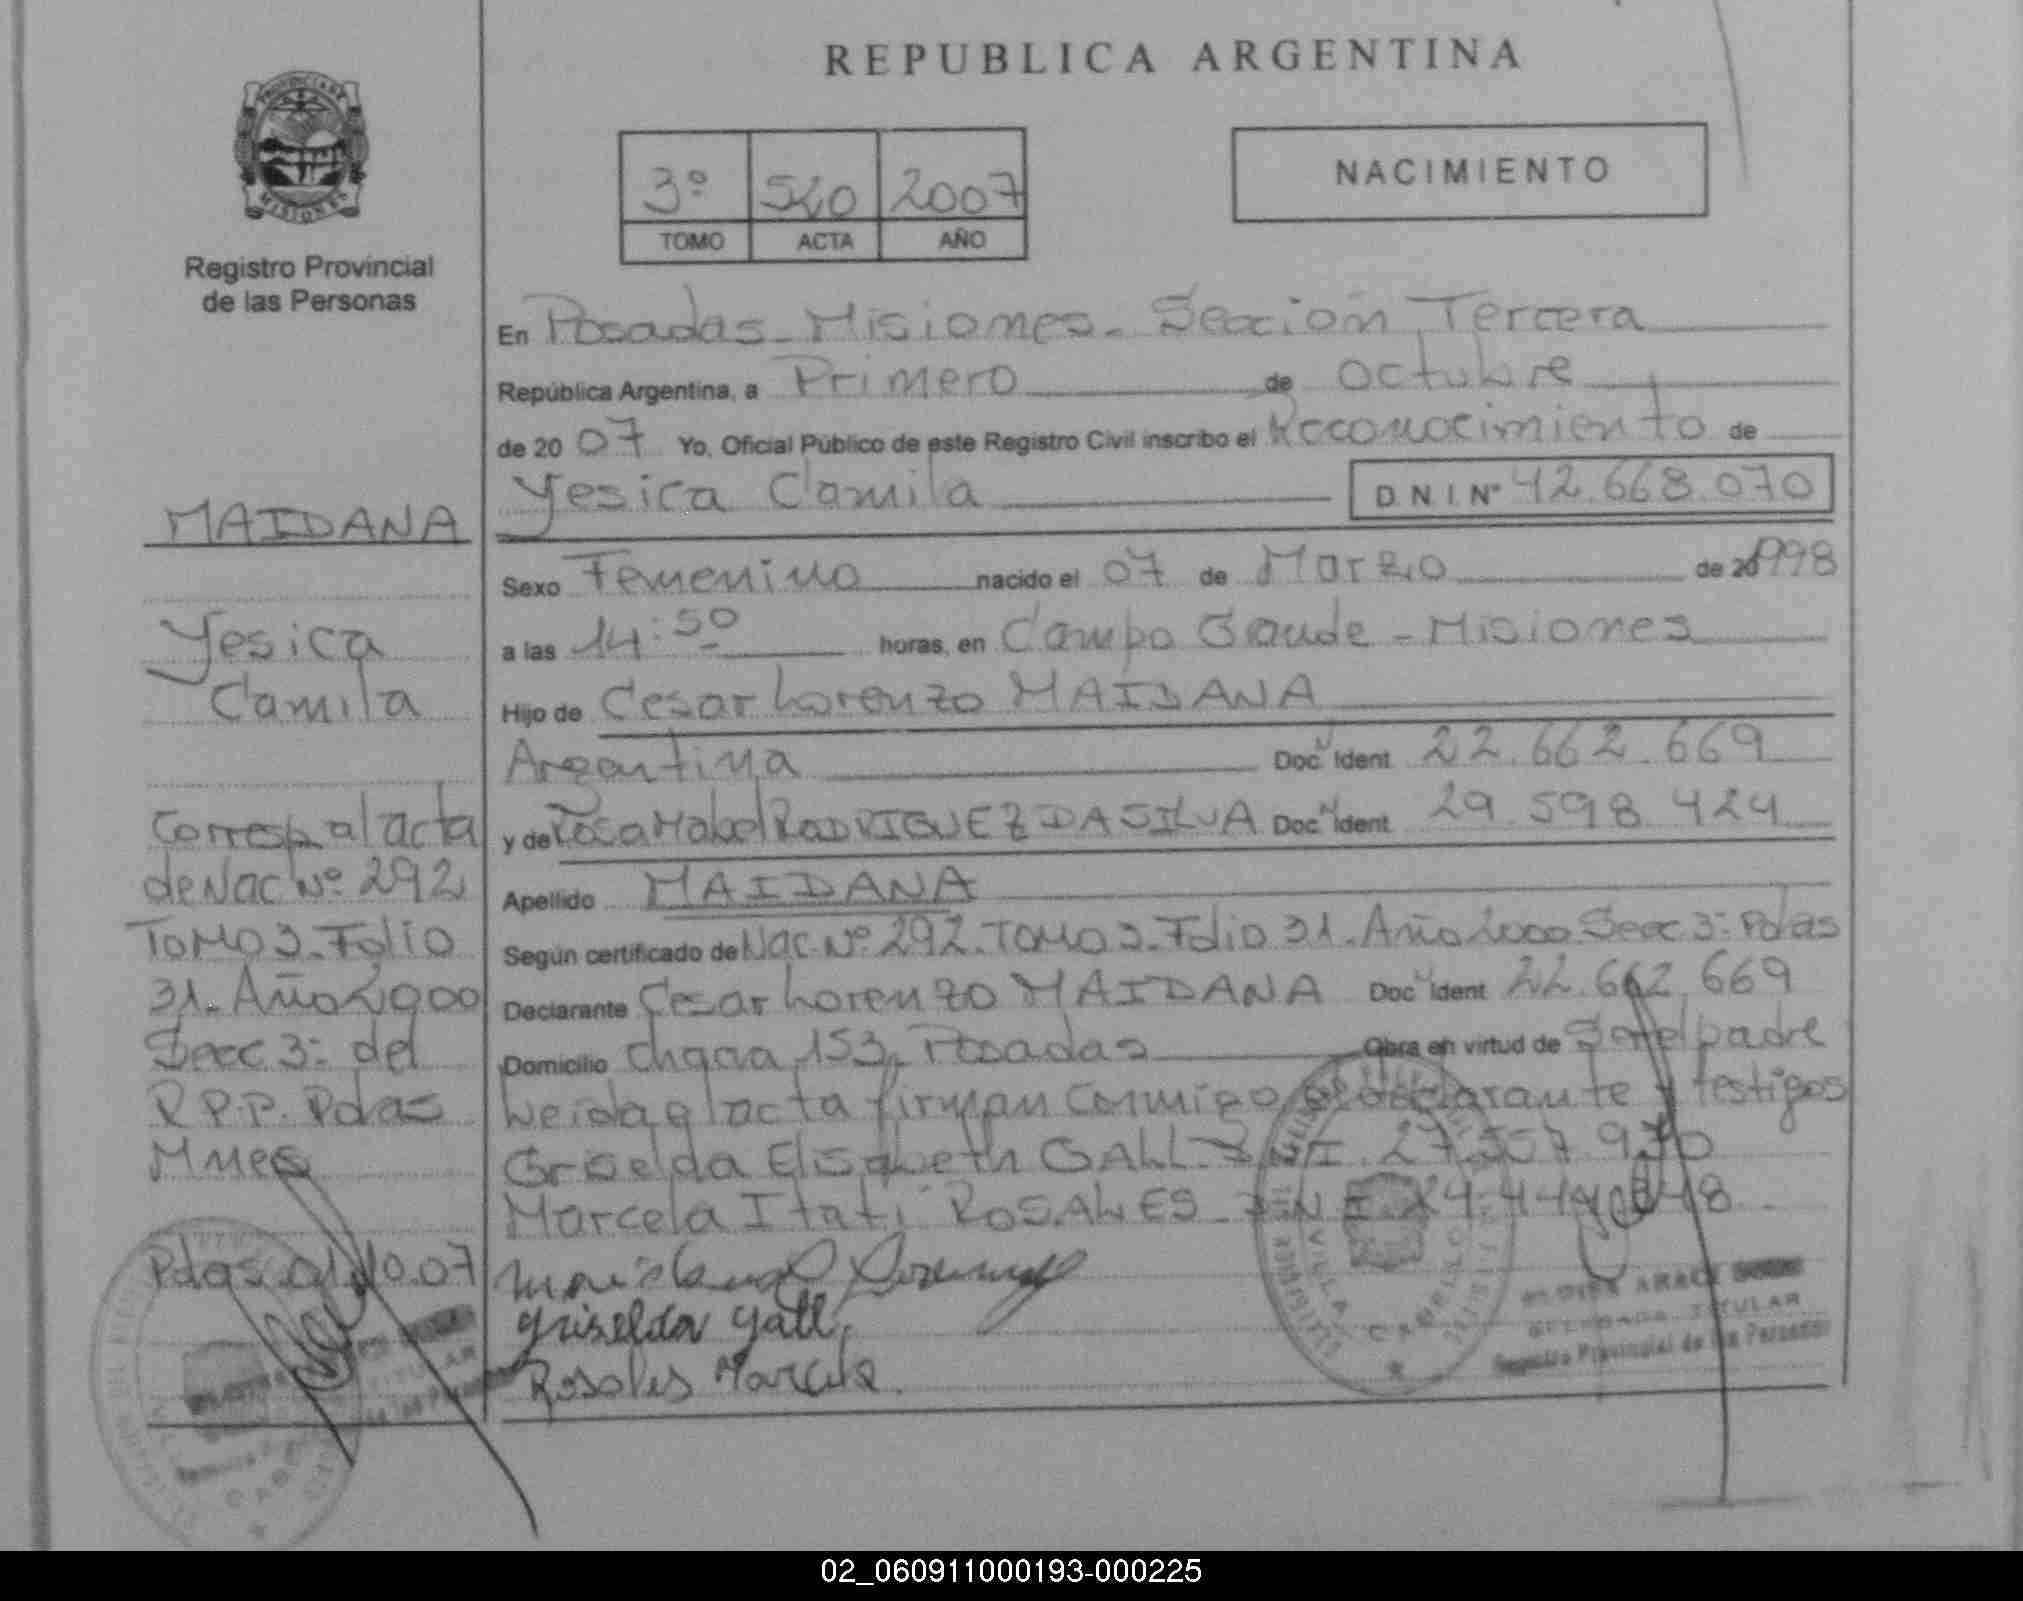 REPUBLICA ARGENTINA
PROVINCIA DE
MISIONES
Registro Provincial
de las Personas
3º 520 2007
TOMO ACTA AÑO
NACIMIENTO
En Posadas - Misiones - Sección Tercera
República Argentina, a Primero de Octubre
de 2007 Yo, Oficial Público de este Registro Civil inscribo el Reconocimiento de
Yesica Camila D.N.I. Nº 42.668.070
Sexo Femenino nacido el 07 de Marzo de 1998
a las 14:50 horas, en Campo Grande - Misiones
Hijo de Cesar Lorenzo MAIDANA
Argentina Doc Ident 22.662.669
y de Rosa Mabel RODRIGUEZ DA SILVA Doc Ident 29.598.424
Apellido MAIDANA
Según certificado de Nac. Nº 292. Tomo 3. Folio 31. Año 2000. Secc 3ª Pdas
Declarante Cesar Lorenzo MAIDANA Doc Ident 22.662.669
Domicilio chacra 153, Posadas Obra en virtud de Ser el padre
Leida el acta firman conmigo el declarante y testigos
Griselda Elisabeth GALL. DNI. 27.557.970
Marcela Itatí ROSALES - DNI
Griselda Gall.
Rosales Marcela.
MAIDANA
Yesica
Camila
Corresp al acta
de Nac Nº 292
Tomo 3. Folio
31. Año 2000
Secc 3ª del
R.P.P. Pdas
Mnes
Pdas. 01.10.07
VILLA CABELLO
TITULAR
Registro Provincial de las Personas
02_060911000193-000225